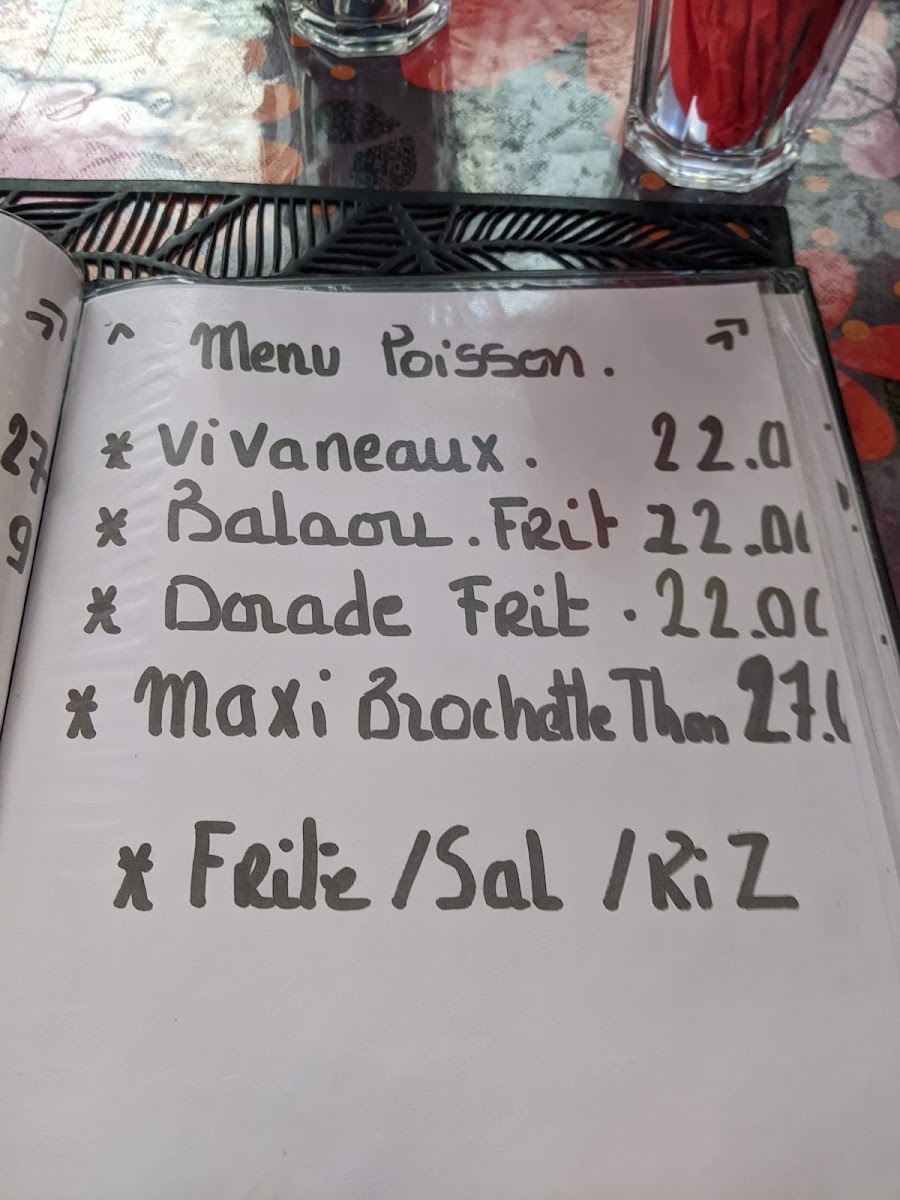 Menu Poisson.
* Vivaneaux. 22.0
* Balaou. Frit 22.00
* Dorade Frit. 22.00
* Maxi Brochette Thon 27.0
* Frite /Sal /Riz
27
9